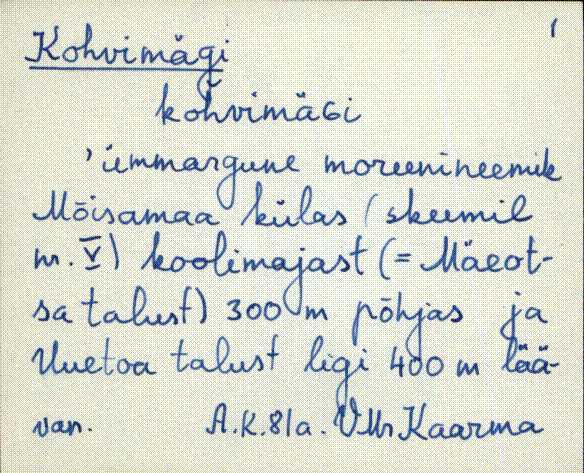 1
Kohvimägi
kohvimäGi
'ümmargune moreenineemik
Mõisamaa külas (skeemil
nr. V) koolimajast (= Mäeot-
sa talust) 300 m põhjas ja
Uuetoa talust ligi 400 m lää-
van. A.K.81a. VMr Kaarma